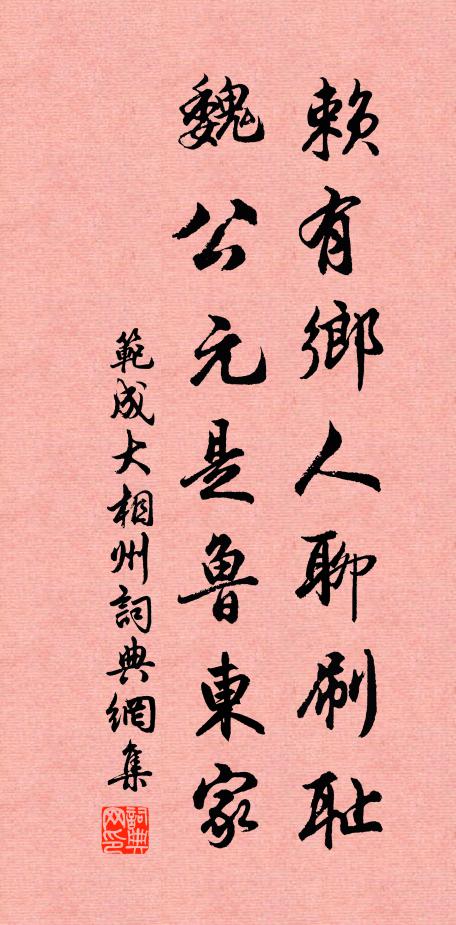 賴有鄉人聊刷恥
魏公元是魯東家
範成大相州詞典網集
詞典网印